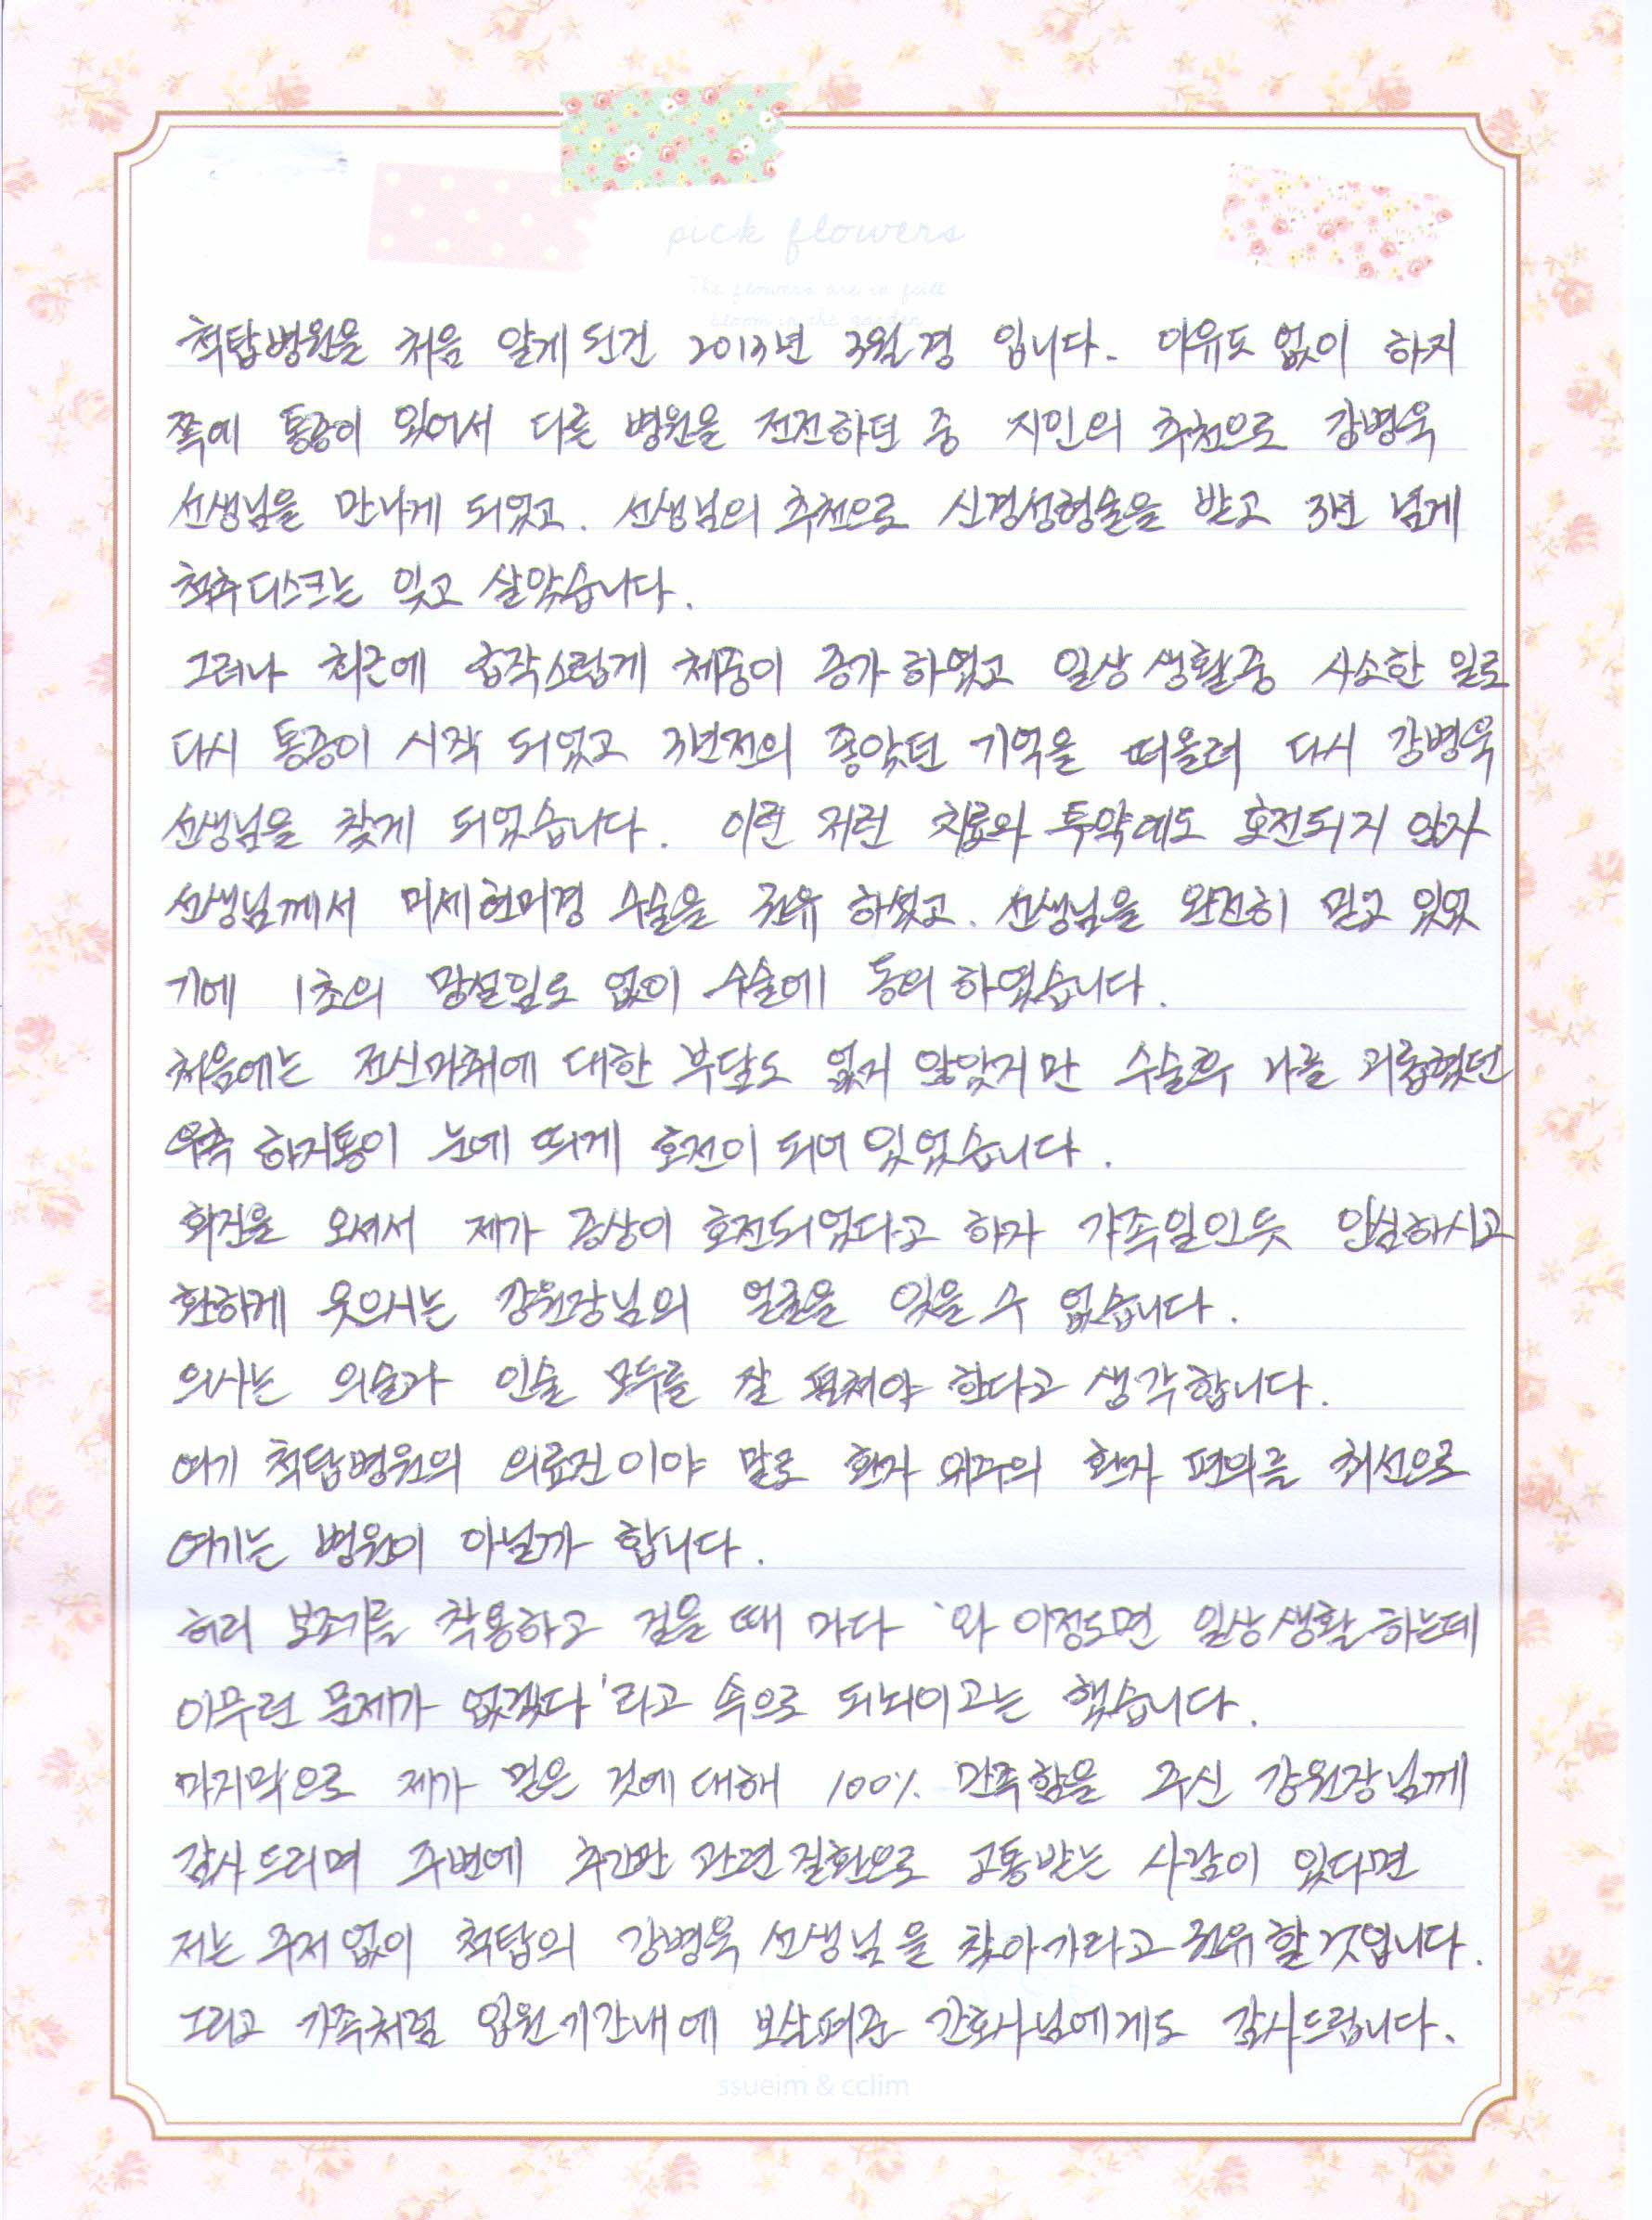 pick flowers
The flowers are in full
bloom in the garden
척탑병원을 처음 알게 된건 2013년 3월경 입니다. 이유도 없이 하지
쪽에 통증이 있어서 다른 병원을 전전하던 중 지인의 추천으로 강병욱
선생님을 만나게 되었고. 선생님의 추천으로 신경성형술을 받고 3년 넘게
척추디스크는 잊고 살았습니다.
그러나 최근에 갑작스럽게 체중이 증가 하였고 일상 생활중 사소한 일로
다시 통증이 시작 되었고 3년전의 좋았던 기억을 떠올려 다시 강병욱
선생님을 찾게 되었습니다. 이런 저런 치료와 투약에도 호전되지 않자
선생님께서 미세현미경 수술을 권유 하셨고. 선생님을 완전히 믿고 있었
기에 1초의 망설임도 없이 수술에 동의 하였습니다.
처음에는 전신마취에 대한 부담도 없지 않았지만 수술후 나를 괴롭혔던
우측 하지통이 눈에 띄게 호전이 되어 있었습니다.
회진을 오셔서 제가 증상이 호전되었다고 하자 가족일인듯 안심하시고
환하게 웃으시는 강원장님의 얼굴을 잊을 수 없습니다.
의사는 의술과 인술 모두를 잘 펼쳐야 한다고 생각합니다.
여기 척탑병원의 의료진이야 말로 환자 위주의 환자 편의를 최선으로
여기는 병원이 아닐까 합니다.
허리 보조기를 착용하고 걸을 때 마다 '와 이정도면 일상생활 하는데
아무런 문제가 없겠다'라고 속으로 되뇌이고는 했습니다.
마지막으로 제가 믿은 것에 대해 100% 만족함을 주신 강원장님께
감사 드리며 주변에 추간판 관련 질환으로 고통받는 사람이 있다면
저는 주저 없이 척탑의 강병욱 선생님을 찾아가라고 권유 할것입니다.
그리고 가족처럼 입원기간내에 보살펴준 간호사님에게도 감사드립니다.
ssueim & cclim